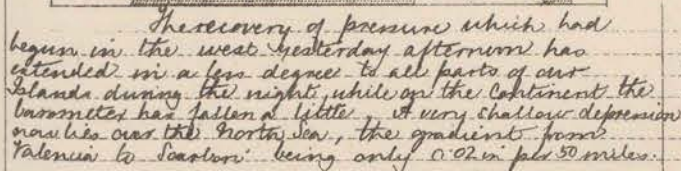 The recovery of pressure which had
begun in the west yesterday afternoon has
extended in a less degree to all parts of our
Islands during the night, while on the Continent the
barometer has fallen a little. A very shallow depression
now lies over the North Sea, the gradient from
Valencia to Scarboro' being only 0.02 in per 50 miles.